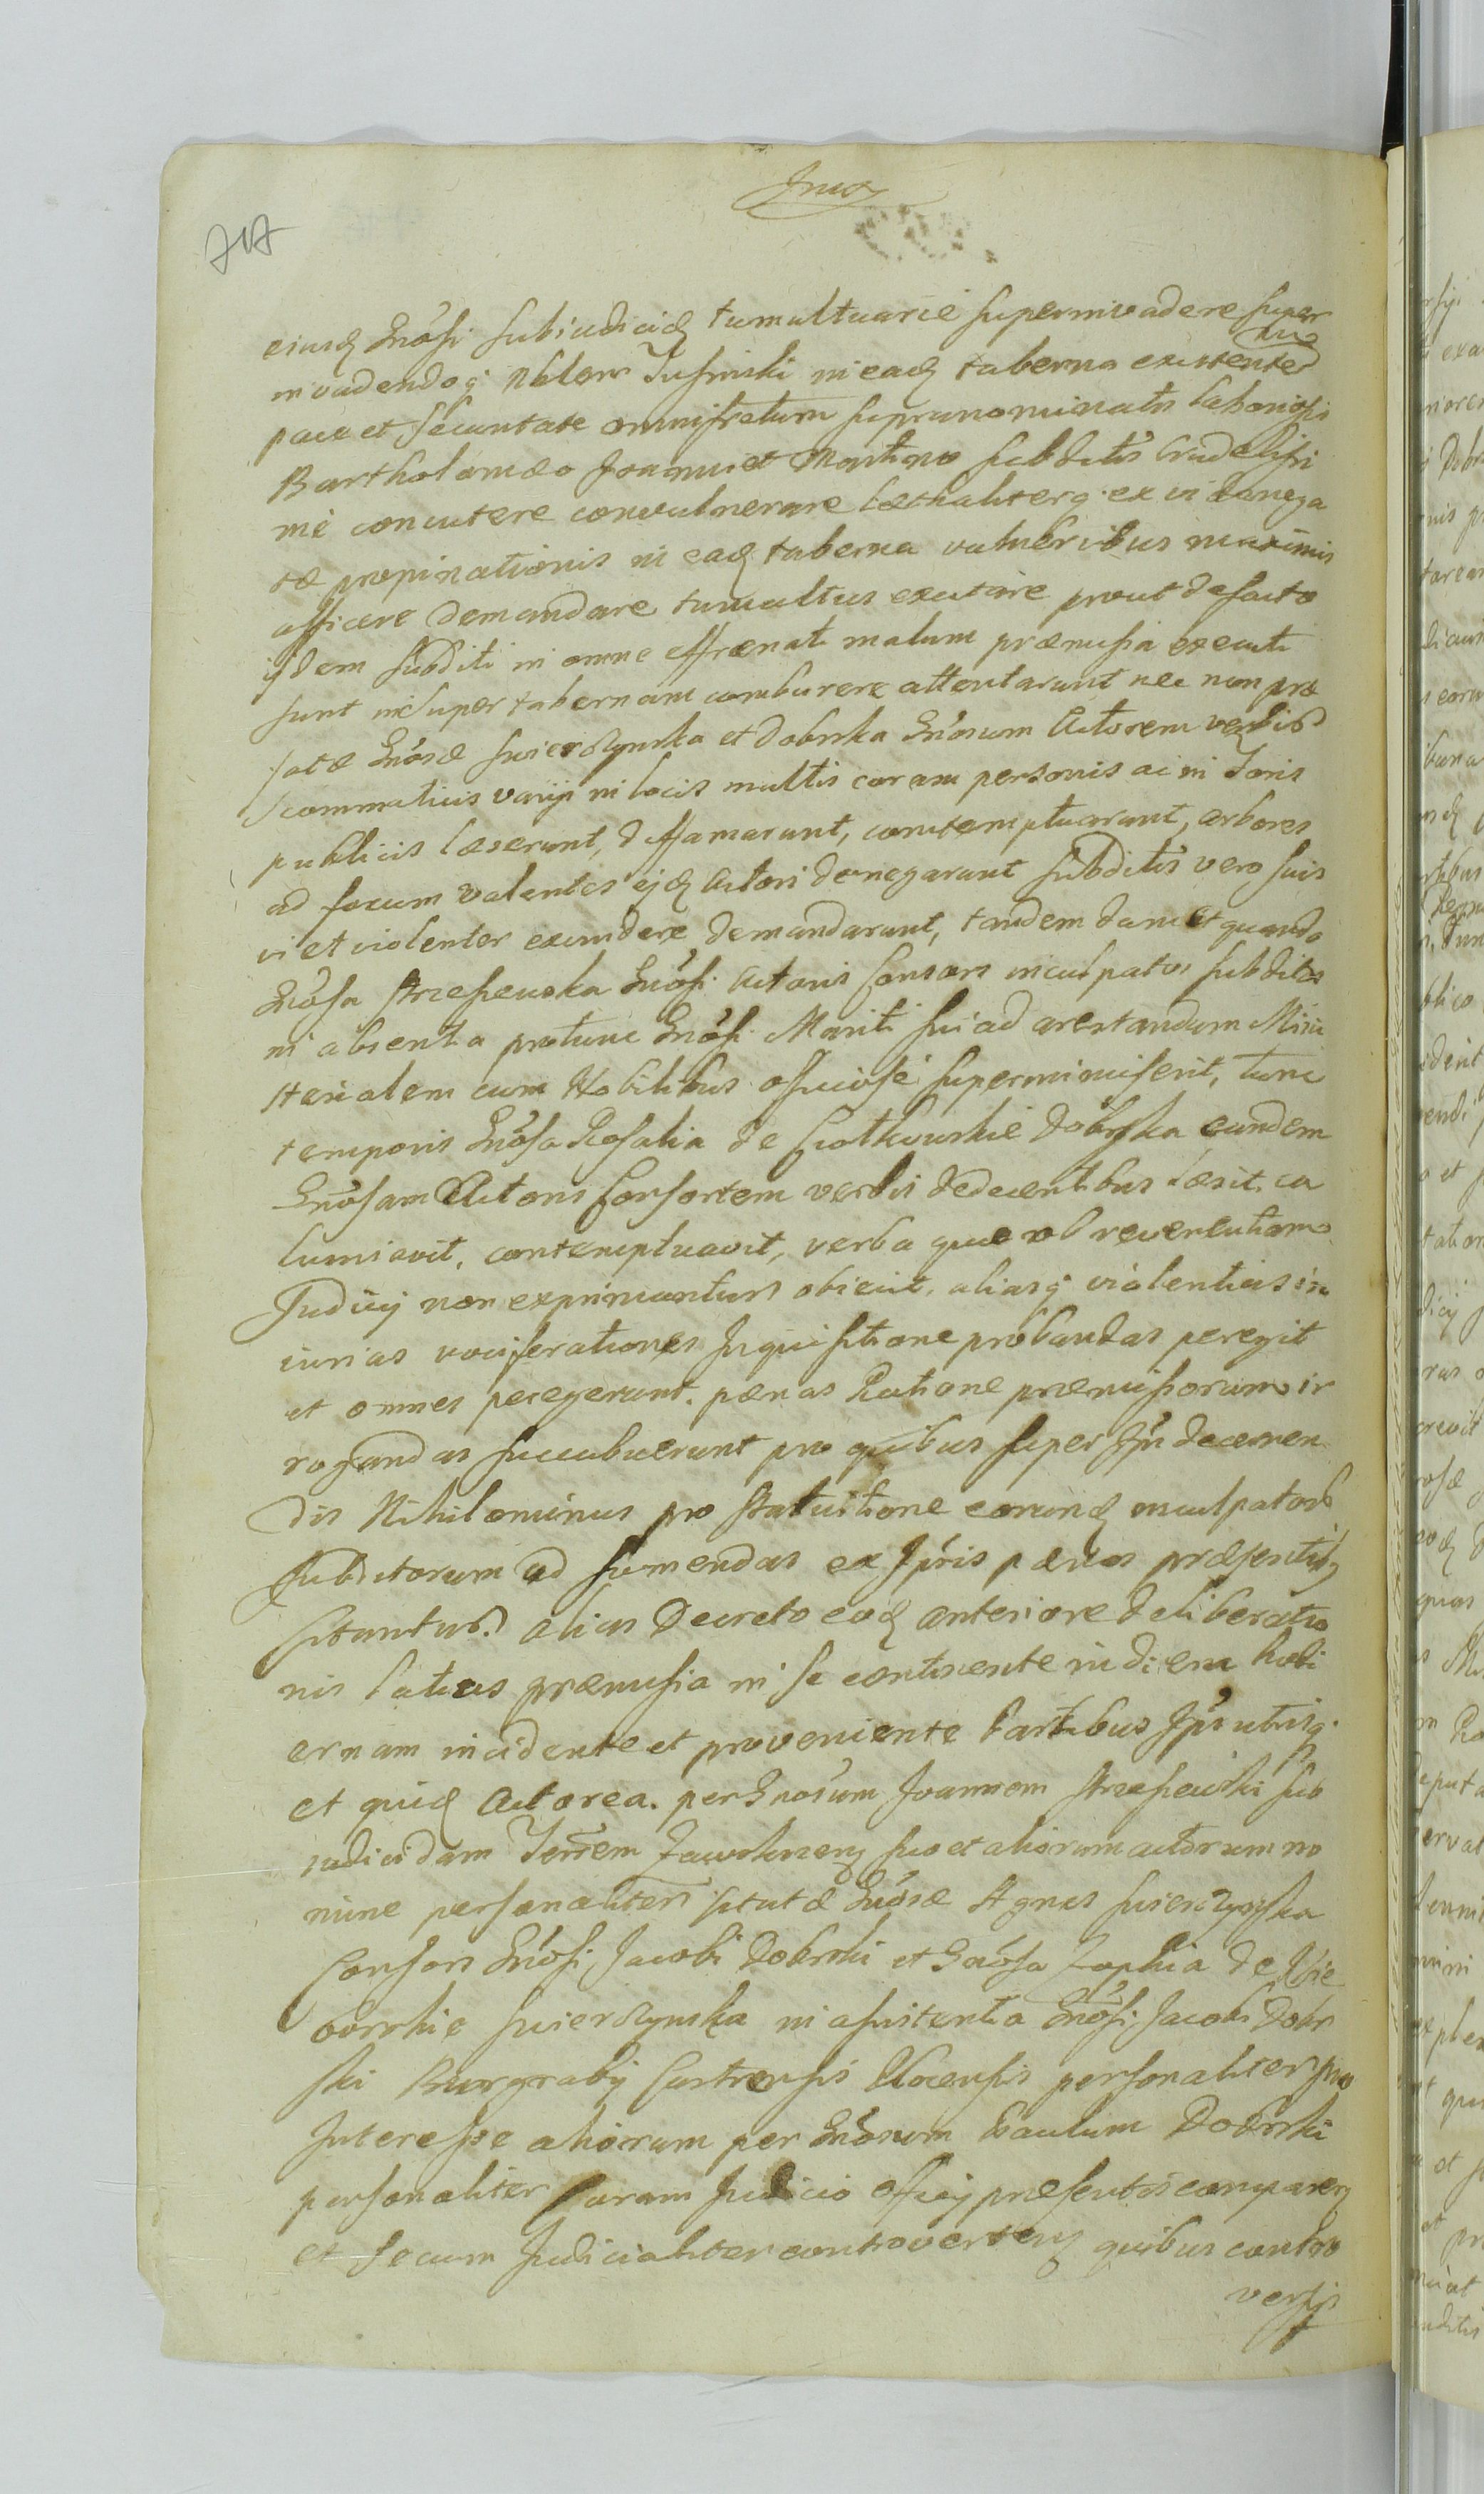 717
eiusq Gnosi subiudiciq tumultuarie superinvadere super
invadendoq Nblem Jusinski in eadq taberna existente
pace et securitate omni fretum supranominatis laboriosis
Bartholomæo Joanni et Martino subditis crudelissi
mè concutere convulnerare læthaliterq ex vi denega
tæ propinationis in eadq taberna vulneribus maximis
afficere demandare tumultus excitare prout de facto
ijdem subditi in omne effrænati malum præmissa executi
sunt insuper tabernam comburere attentarunt nec non præ
fatæ Gnosæ Swierczynska et Dobrska Gnosum Actorem verbis
scommaticis varijs in locis multis coram personis ac in Foris
publicis læserunt, diffamarunt, contemptuarunt, arbores
ad forum valentes ejdq Actori denegarunt subditis vero suis
vi et violenter exundere demandarunt, tandem dum et quando
Gnosa Strzeszewska Gnosi Actoris Consors inculpatos subditos
in absentia protunc Gnosi Mariti sui ad arestandum Mini
sterialem cum Nobilibus officiose superimmiserit, tunc
temporis Gnosa Rosalia de Ciołkowskie Dobrska eandem
Gnosam Actoris Consortem verbis dedecentibus læsit, ca
lumiavit, contemptuavit, verba quæ ob reverentiam
Judicij non exprimuntur obiecit, aliasq violentias in
iurias vociferationes Inquisitione probandas peregit
et omnes peregerunt. pænas Ratione præmissorum ir
rogandas succubuerunt pro quibus super Ipsis decernen
dis Nihilominus pro statuitione eorundq inculpatorum
subditorum ad sumendas ex Ipsis pænas præsentibq
citantur. alias Decreto eodq anteriore deliberatio
nis latius præmissa in se continente in diem hodi
ernam incidente et proveniente Partibus Ipsis utrisq
et quidq Actorea. per Gnosum Joannem Strzeszewski sub
iudicidam Terrem Zawskrzenq suo et aliorum actorum no
mine personaliter citatæ Gnosæ Agnes Swierczynska
Consors Gnosi Jacobi Dobrski et Gnosa Zophia de
Swierczynska in assistentia Gnosi Jacobi Dobr
ski Burgrabij Castrensis personaliter pro
Interesse aliorum per Gnosum Paulum Dobrski
personaliter Coram Judicio Officij præsentis comparenq
et secum Judicialiter controvertenq quibus contro
versijs